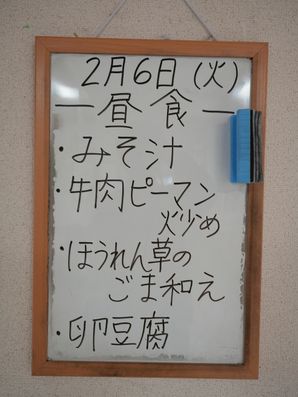 2月6日(火)
ー昼食ー
・みそ汁
・牛肉ピーマン
炒め
・ほうれん草の
ごま和え
・卵豆腐